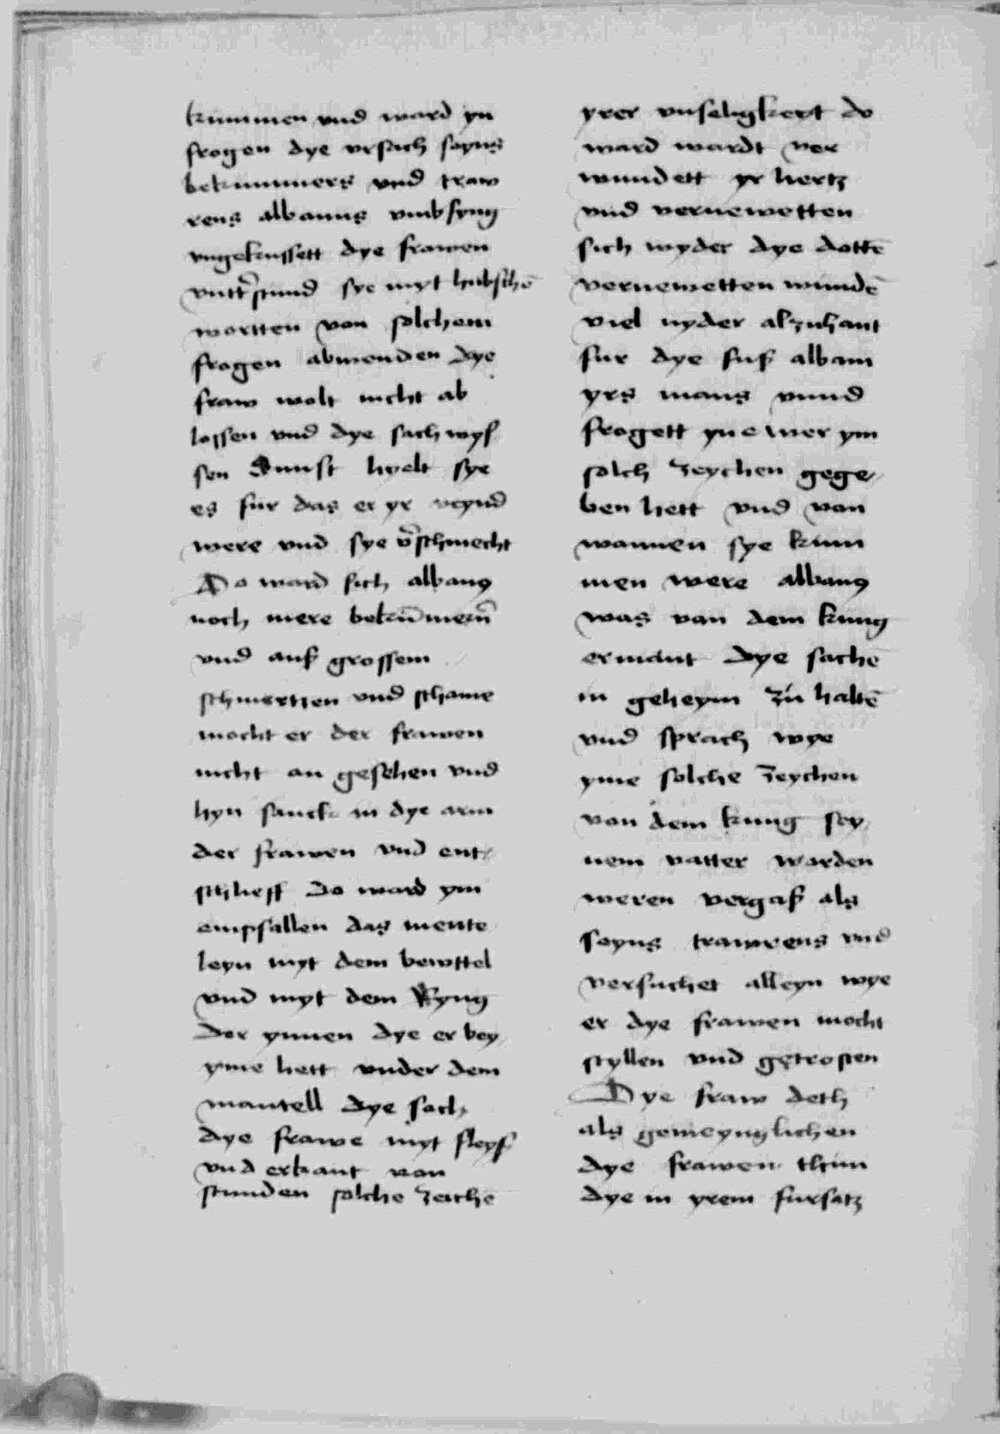 kummen vnd ward yn
frogen dye vrsach seyns
bekummers vnd traw
rens albanus vmbfyng
vngekussett dye frawen
vntterstund sye myt hubschē
wortten von solchem
frogen abwenden dye
fraw wolt nicht ab
lossen vnd dye sach wys
sen Sunst hyelt sye
es fur das er yr veynd
were vnd sye v̄schmecht
Do ward sich albanꝰ
noch mere bekūmern̄
vnd auß grossem
schmertzen vnd schame
mocht er der frawen
nicht an gesehen vnd
hyn sanck in dye arm
der frawen vnd ent
schlieff Do ward ym
empfallen das mente
leyn myt dem bewttel
vnd myt dem Ryng
Dor ynnen dye er bey
yme hett vnder dem
mantell dye sach
dye frawe myt fleyß
vnd erkant von
stunden solche zeichē
yrer vnseligkeyt do
ward wardt ver
wundett yr hertz
vnd vernewetten
sich wyder dye dottē
vernewetten wundē
viel nyder alzuhant
fur dye fuß albani
yrs mans vnnd
frogett yne wer ym
solch zeychen gege
ben hett vnd von
wannen sye kum
men were albanꝰ
was von dem kung
ermant dye sachē
in geheym zu haltē
vnd sprach wye
yme solche zeychen
von dem kung sey
nem vatter worden
weren vergaß als
seyns trawrens vnd
versuchet alleyn wye
er dye frawen mocht
styllen vnd getrosten
Dye fraw deth
als gemeynglichen
dye frawen thun
dye in yrem fursatz